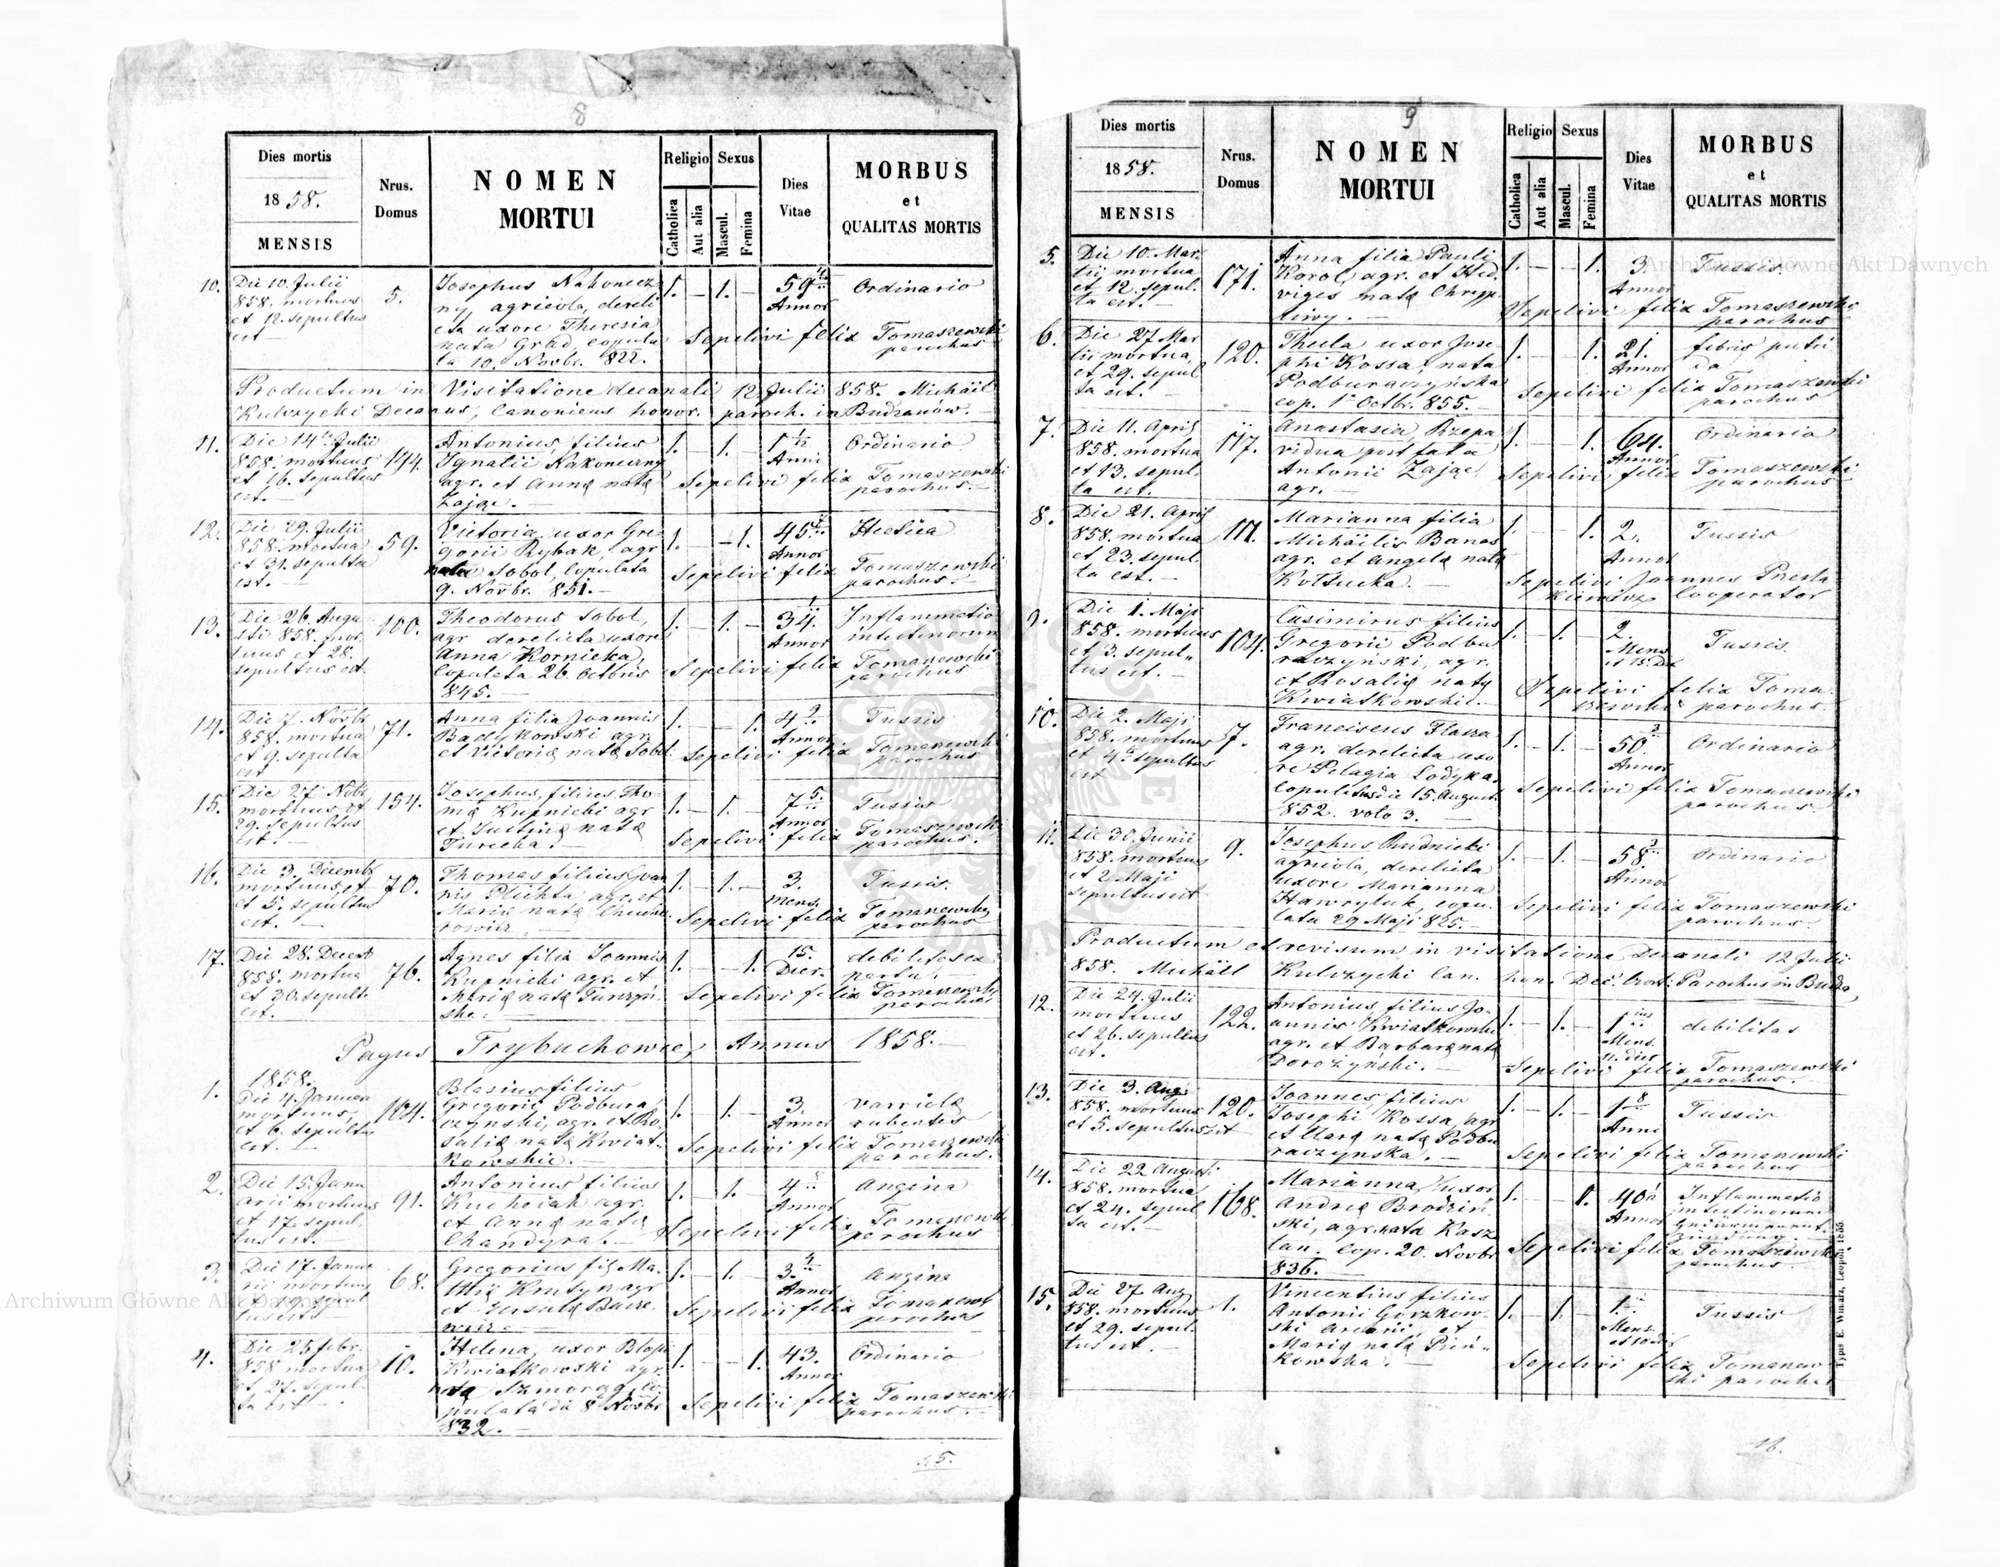 8
Dies mortis
1858.
MENSIS
Nrus. Domus
NOMEN
MORTUI
Religio
Catholica
Aut alia
Sexus
Mascul.
Femina
Dies
Vitae
MORBUS
et
QUALITAS MORTIS
10. Die 10. Julii 5. Josephus Nakonecz 1. – 1. – 59 Ordinario
858. mortuus ny, agricola, dereli Annor
et 12. sepultus cta uxore Theresia
est – nata Grad, copula Sepelivi felix Tomaszewski
ta 10. Novbr. 822. parochus
Productum in Visitatione decanali 12 Julii 858. Michäil
Kulczycki Decanus, Canonicus honor. paroch. in Budzanow. –
11. Die 14 Julii 144. Antonius, filius 1. – 1. – 1 Ordinario
858. mortuus Ignatii Nakoneczny Anni
et 16. sepultus agr. et Anna nata Sepelivi felix Tomaszewski
est. – Zając. – parochus. –
12. Die 29. Julii 59. Victoria uxor Gre 1. – – 1. 45 Hectica
858. mortua gorii Rybak, agr Annor
et 31. sepulta nata Sobol, copulata Sepelivi felix Tomaszewski
est. – 9. Novbr. 851. – parochus. –
13. Die 26. Augu 100. Theodorus Sobol, 1. – 1. – 34. Inflammatio
sti 858. mor agr derelicta uxore Annor intestinorum
tuus et 28. Anna Kornicka, Sepelivi felix Tomaszewski
sepultus est. Copulata 26 Octbris parochus
845. –
14. Die 7. Novbr 71. Anna filia Joannis 1. – – 1. 4 Tussis
858. mortua Badykowski agr Annor
et 9. sepulta et Victoria nata Sobol. Sepelivi felix Tomaszewski
est parochus
15. Die 27 Novb 154. Josephus, filius Tho 1. – 1. – 7 Tussis
mortuus et ma Kupnicki agr Annor
29. sepultus et Justina nata Sepelivi felix Tomaszewski
est. – Turecka. – parochus.
16. Die 3. Decemb 70. Thomas filius Joan 1. – 1. – 3. Tussis.
mortuus et nis Plichta, agr. et Mens.
et 5. sepultus Maria nata Sepelivi felix Tomaszewski
est. – parochus
17. Die 28. Decemb 76. Agnes filia Joannis 1. – – 1. 15. debilitas ex
858. mortua Kupnicki agr. et Dier. partu. –
et 30. sepulta Maria nata Turzyń Sepelivi felix Tomaszewski
est. ska. – parochus
Pagus Trybuchowce, Annus 1858. –
1858.
1. Die 4. Januar 104. Blasius filius 1. – 1. – 3. variola
mortuus, Gregorii Podbura Annor rubentis
et 6. sepultus czynski, agr. et Ro
est. – salia nata Kwiat- Sepelivi felix Tomaszewski
kowskie. – parochus.
2. Die 15. Janu 91. Antonius filius 1. – 1. 4 Angina
arii mortuus Kuchciak agr. Annor
et 17. sepul et Anna nata Sepelivi felix Tomaszewski
tus est. – Chandyra. – parochus
3. Die 17. Janua 68. Gregorius fil Ma 1. – 1. – 3. Angina
rii mortuus agr Annor
et 19. sepul et Ursula Sepelivi felix Tomaszewski
tus est – parochus
4. Die 25 febr. 10. Helena, uxor Blasii 1. – – 1. 43. Ordinario
858 mortua Kwiatkowski agr. Annor
et 27. sepul nata Szmorąg, co Sepelivi felix Tomaszewski
ta est – pulata die 8 Novbr parochus. –
832. –
15.
9
Dies mortis
1858.
MENSIS
Nrus. Domus
NOMEN
MORTUI
Religio
Catholica
Aut alia
Sexus
Mascul.
Femina
Dies
Vitae
MORBUS
et
QUALITAS MORTIS
5. Die 10. Mar- 171. Anna filia Pauli 1. – – 1. 3. Tussis
tii mortua Korol, agr. et Hed Annor
et 12. sepul. viges nata Chryp
ta est. – tiwy. – Sepelivi felix Tomaszewski
parochus
6. Die 27 Mar 120. Thecla uxor Jose 1. – – 1. 21. febris putri
tii mortua, phi Kossa, nata Annor da
et 29. sepul Podburaczyńska Sepelivi felix Tomaszewski
ta est. – cop. 1 Octbr. 855. – parochus
7. Die 11. April 117. Anastasia Rzepa 1. – – 1. 64. Ordinario
858. mortua vidua post fata Annor
et 13. sepul- Antonii Zając Sepelivi felix Tomaszewski
ta est. agr. – parochus
8. Die 21. April 111. Marianna filia 1. – – 1. 2. Tussis
858. mortua Michäilis Banas Annor
et 23. sepul agr. et Angela nata
ta est. – Kołtucka. – Sepelivi Joannes
Cooperator
9. Die 1. Maji 104. Casimirus filius 1. – 1. – 2. Tussis.
858. mortuus Gregorii Podbu Mens
et 3. sepul- raczyński, agr. et 15. Die
tus est. – et Rosalia nata Sepelivi felix Toma
Kwiatkowskie. – szewski parochus.
10. Die 2. Maji 7. Franciscus Flasza 1. – 1. – 50. Ordinario
858. mortuus agr. derelicta uxo Annor
et 4 sepultus re Pelagia Lodyka,
est copulatus die 15. August. Sepelivi felix Tomaszewski
852. voto 3. – parochus. –
11. Die 30. Junii 9. Josephus Rudnicki 1. – 1. – 58. Ordinario
858. mortuus agricola, derelicta Annor
et 2 Maji uxore Marianna
sepultus est Hawryluk, copu- Sepelivi felix Tomaszewski
lata 29 Maji 825. – parochus. –
Productum et revisum in visitatione Decanali 12 Julii
858. Michäil Kulczycki Can. hon. Dec. Parochus in Budza,
12. Die 24. Julii 122. Antonius, filius Jo- 1. – 1. – 1 debilitas
mortuus annis Kwiatkowski Mens.
et 26. sepultus agr. et Barbara nata 11. dier
est. Dorożyński. – Sepelivi felix Tomaszewski
parochus. –
13. Die 3. Aug. 120. Joannes filius 1. – 1. – 1 Tussis
858. mortuus Josephi Kossa, agr Anni
et 5. sepultus est et Clara nata Podbu
raczyńska. – Sepelivi felix Tomaszewski
parochus
14. Die 22 Augusti 168. Marianna, uxor 1. – – 1. 40 Inflammatio
858. mortua Andrea Brodziń Annor intestinorum
et 24. sepul ski, agr. nata Kasz
ta est. – tan. Cop. 20. Novbr Sepelivi felix Tomaszewski
836. – parochus. –
15. Die 27 Aug 1. Vincentius filius 1. – 1. – 1. Tussis
858. mortuus Antonii Gorzkow- Mens.
et 29. sepul. ski et
tus est. – Maria nata Pień-
kowska. – Sepelivi felix Tomaszew
ski parochus
Typis E. Winiarz, Leopoli 1855.
16.
Archiwum Główne Akt Dawnych
Archiwum Główne Akt Dawnych
ARCHIWUM GŁÓWNE AKT DAWNYCH